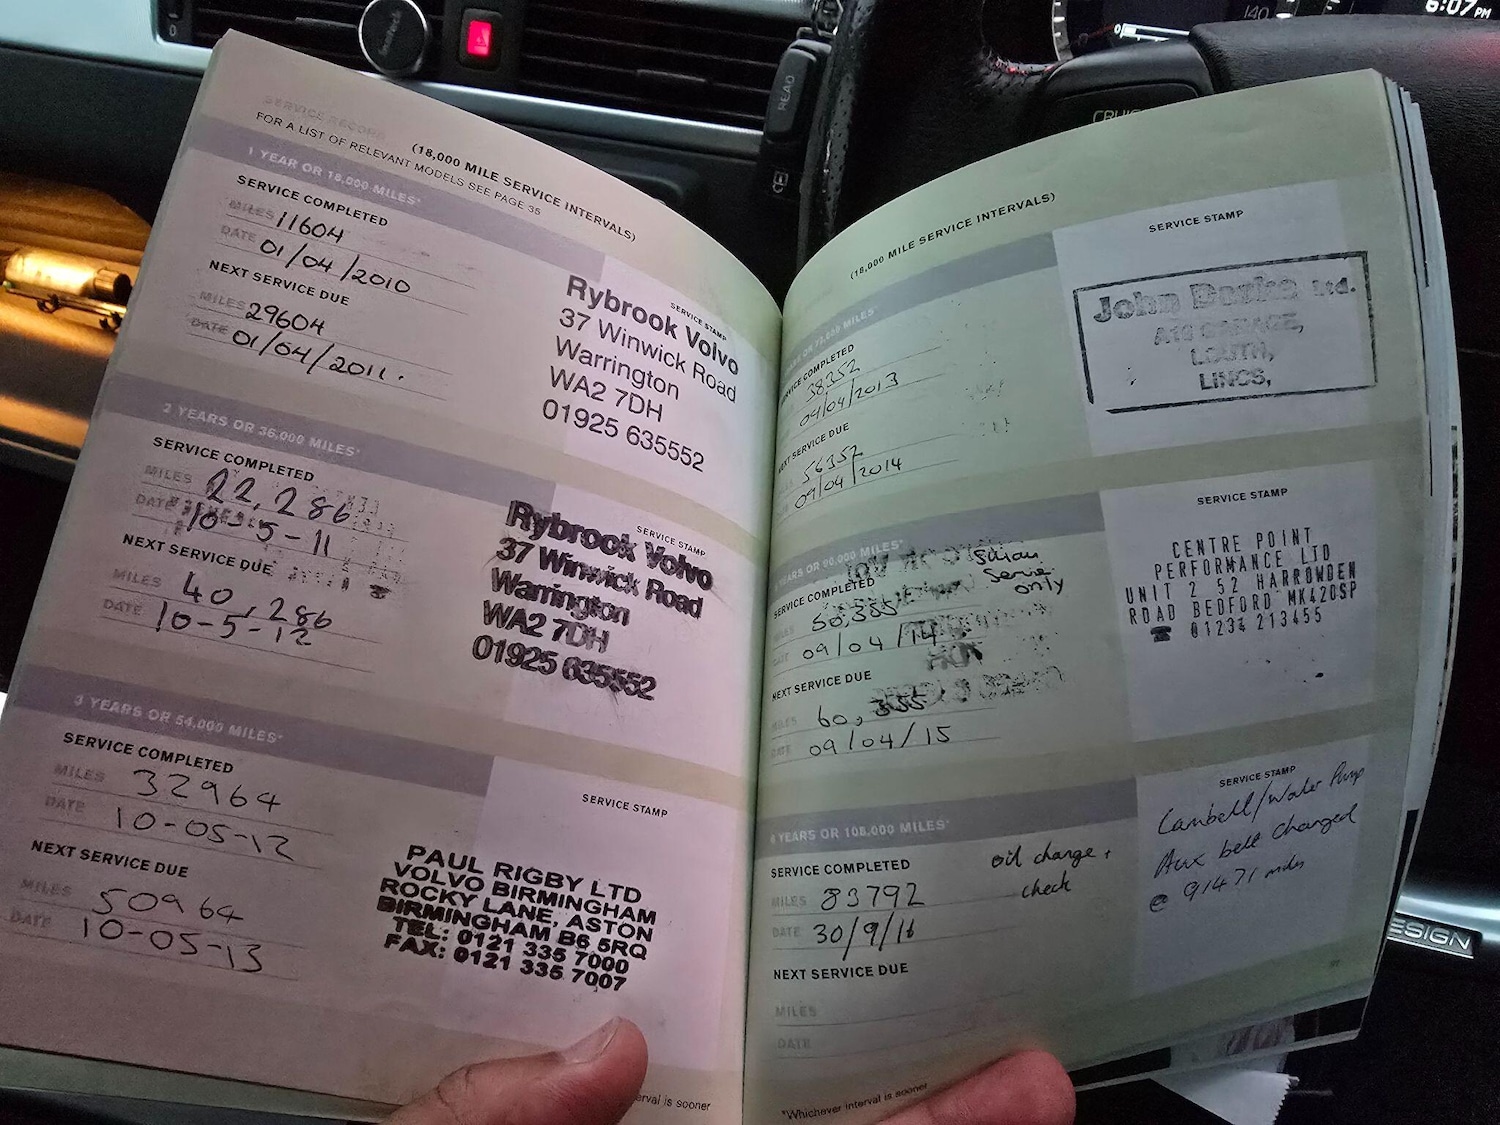 6:07PM
140
READ
CRUIS
SERVICE RECORD
(18,000 MILE SERVICE INTERVALS)
FOR A LIST OF RELEVANT MODELS SEE PAGE 35
1 YEAR OR 18,000 MILES*
SERVICE COMPLETED
MILES 11604
DATE 01/04/2010
NEXT SERVICE DUE
MILES 29604
DATE 01/04/2011.
SERVICE STAMP
Rybrook Volvo
37 Winwick Road
Warrington
WA2 7DH
01925 635552
2 YEARS OR 36,000 MILES*
SERVICE COMPLETED
MILES 22,286
DATE 10-5-11
NEXT SERVICE DUE
MILES 40,286
DATE 10-5-12
SERVICE STAMP
Rybrook Volvo
37 Winwick Road
Warrington
WA2 7DH
01925 635552
3 YEARS OR 54,000 MILES*
SERVICE COMPLETED
MILES 32964
DATE 10-05-12
NEXT SERVICE DUE
MILES 50964
DATE 10-05-13
SERVICE STAMP
PAUL RIGBY LTD
VOLVO BIRMINGHAM
ROCKY LANE, ASTON
BIRMINGHAM B6 5RQ
TEL: 0121 335 7000
FAX: 0121 335 7007
erval is sooner
(18,000 MILE SERVICE INTERVALS)
OR 72,000 MILES*
SERVICE COMPLETED
38352
09/04/2013
NEXT SERVICE DUE
56352
09/04/2014
SERVICE STAMP
John Ltd.
GARAGE,
LOUTH,
LINCS,
YEARS OR 90,000 MILES*
Service
only
SERVICE COMPLETED
MILES 50,355
DATE 09/04/14
NEXT SERVICE DUE
MILES 60,355
DATE 09/04/15
SERVICE STAMP
CENTRE POINT
PERFORMANCE LTD
UNIT 2 52 HARROWDEN
ROAD BEDFORD MK420SP
☎ 01234 213455
6 YEARS OR 108,000 MILES*
SERVICE COMPLETED
MILES 83792
DATE 30/9/16
oil change +
check
NEXT SERVICE DUE
MILES
DATE
SERVICE STAMP
Cambelt/Water Pump
Aux belt changed
@ 91471 miles
*Whichever interval is sooner
ESIGN